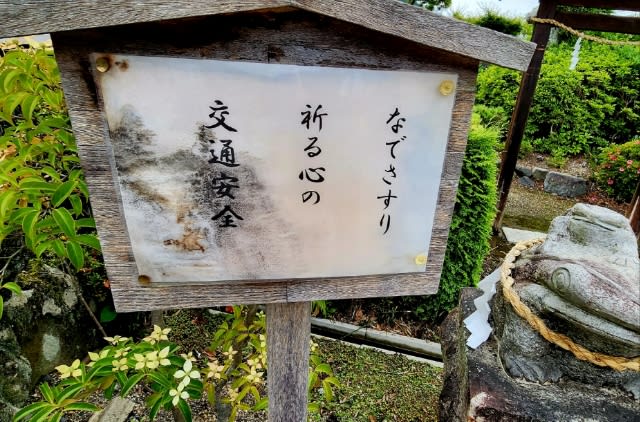 なでさすり
祈る心の
交通安全